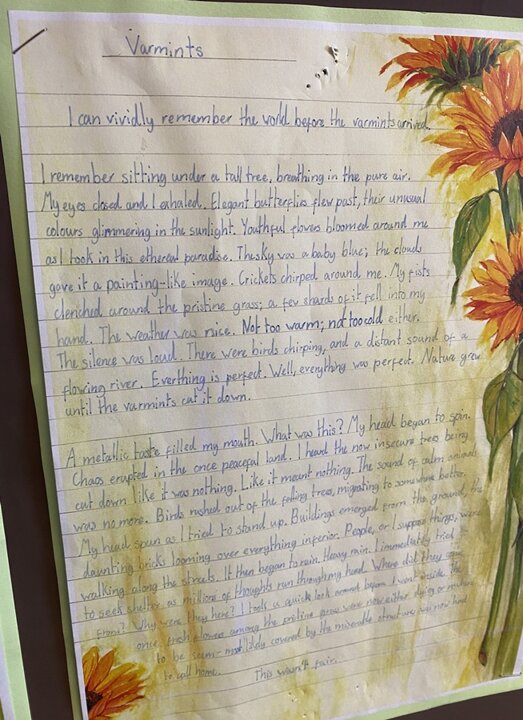 Varmints
I can vividly remember the world before the varmints arrived.
I remember sitting under a tall tree, breathing in the pure air.
My eyes closed and I exhaled. Elegant butterflies flew past, their unusual
colours glimmering in the sunlight. Youthful flowers bloomed around me
as I took in this ethereal paradise. The sky was a baby blue; the clouds
gave it a painting-like image. Crickets chirped around me. My fists
clenched around the pristine grass; a few shards of it fell into my
hand. The weather was nice. Not too warm; not too cold either.
The silence was loud. There were birds chirping, and a distant sound of a
flowing river. Everthing is perfect. Well, everything was perfect. Nature grew
until the varmints cut it down.
A metallic taste filled my mouth. What was this? My head began to spin.
Chaos erupted in the once peaceful land. I heard the now insecure trees being
cut down like it was nothing. Like it meant nothing. The sound of calm around
was no more. Birds rushed out of the falling trees, migrating to somewhere better.
My head spun as I tried to stand up. Buildings emerged from the ground, the
daunting bricks looming over everything inferior. People, or I suppose things, were
walking along the streets. It then began to rain. Heavy rain. I immediately tried
to seek shelter as millions of thoughts run through my head. Where did they come
from? Why were they here? I took a quick look around before I went inside. The
once fresh flowers among the pristine grass were now either dying or nowhere
to be seen- most likely covered by the miserable structure we now had
to call home. This wasn't fair.